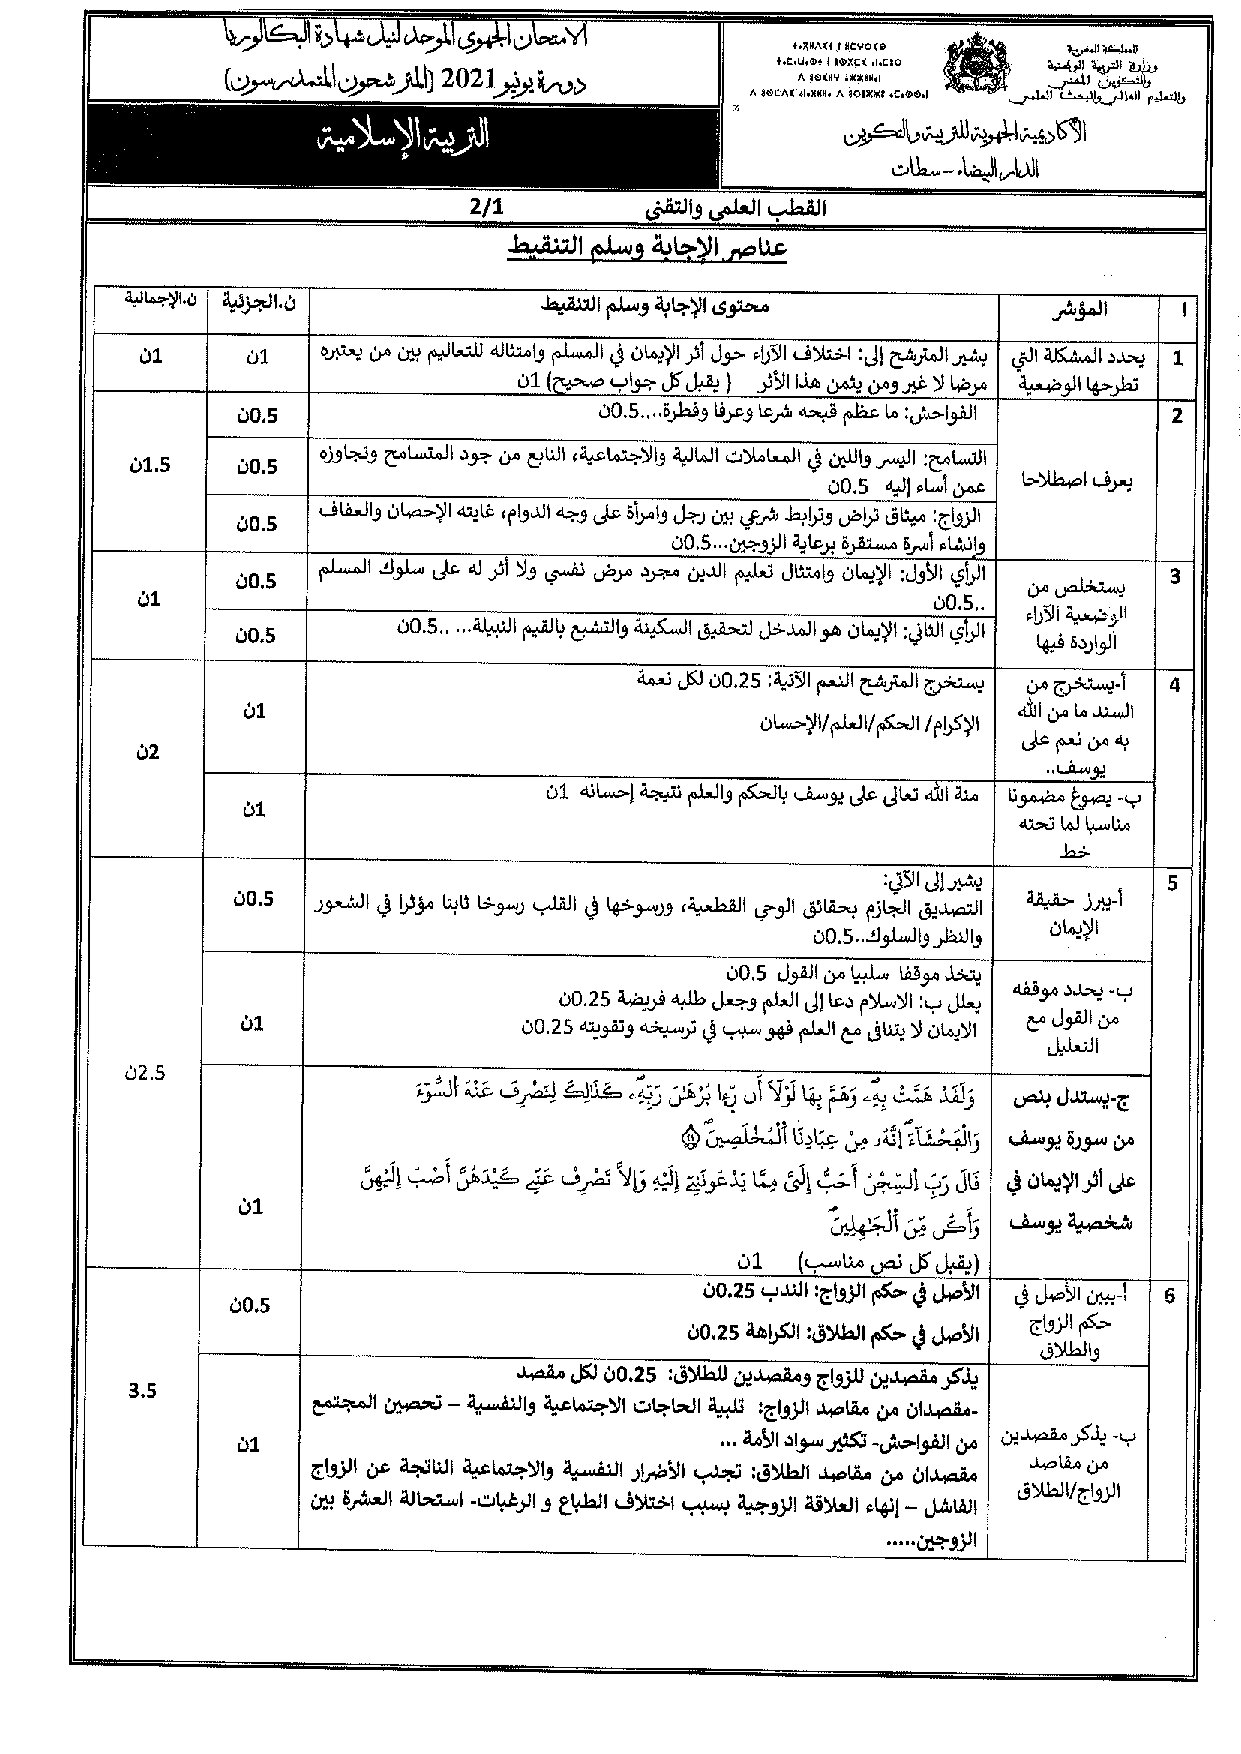 الامتحان الجهوي الموحد لنيل شهادة البكالوريا
دورة يونيو 2021 (المترشحون المتمدرسون)
التربية الإسلامية
المملكة المغربية
وزارة التربية الوطنية
والتكوين المهني
والتعليم العالي والبحث العلمي
الأكاديمية الجهوية للتربية والتكوين
الدار البيضاء – سطات
القطب العلمي والتقني 2/1
عناصر الإجابة وسلم التنقيط
ا المؤشر محتوى الإجابة وسلم التنقيط ن.الجزئية ن.الإجمالية
1 يحدد المشكلة التي
تطرحها الوضعية
يشير المترشح إلى: اختلاف الآراء حول أثر الإيمان في المسلم وامتثاله للتعاليم بين من يعتبره
مرضا لا غير ومن يثمن هذا الأثر ( يقبل كل جواب صحيح) 1ن
1ن 1ن
2 يعرف اصطلاحا
الفواحش: ما عظم قبحه شرعا وعرفا وفطرة....0.5ن
0.5ن
التسامح: اليسر واللين في المعاملات المالية والاجتماعية، النابع من جود المتسامح وتجاوزه
عمن أساء إليه 0.5ن
0.5ن 1.5ن
الزواج: ميثاق تراض وترابط شرعي بين رجل وامرأة على وجه الدوام، غايته الإحصان والعفاف
وإنشاء أسرة مستقرة برعاية الزوجين...0.5ن
0.5ن
3 يستخلص من
الوضعية الآراء
الواردة فيها
الرأي الأول: الإيمان وامتثال تعليم الدين مجرد مرض نفسي ولا أثر له على سلوك المسلم
..0.5ن
0.5ن 1ن
الرأي الثاني: الإيمان هو المدخل لتحقيق السكينة والتشبع بالقيم النبيلة... ..0.5ن
0.5ن
4 أ-يستخرج من
السند ما من الله
به من نعم على
يوسف..
يستخرج المترشح النعم الآتية: 0.25ن لكل نعمة
الإكرام/ الحكم/العلم/الإحسان
1ن 2ن
ب- يصوغ مضمونا
مناسبا لما تحته
خط
منة الله تعالى على يوسف بالحكم والعلم نتيجة إحسانه 1ن
1ن
5 أ-يبرز حقيقة
الإيمان
يشير إلى الآتي:
التصديق الجازم بحقائق الوحي القطعية، ورسوخها في القلب رسوخا ثابتا مؤثرا في الشعور
والنظر والسلوك..0.5ن
0.5ن
ب- يحدد موقفه
من القول مع
التعليل
يتخذ موقفا سلبيا من القول 0.5ن
يعلل ب: الاسلام دعا إلى العلم وجعل طلبه فريضة 0.25ن
الايمان لا يتنافى مع العلم فهو سبب في ترسيخه وتقويته 0.25ن
1ن 2.5ن
ج-يستدل بنص
من سورة يوسف
على أثر الإيمان في
شخصية يوسف
وَلَقَدْ هَمَّتْ بِهِۦ وَهَمَّ بِهَا لَوْلَآ أَن رَّءَا بُرْهَٰنَ رَبِّهِۦ كَذَٰلِكَ لِنَصْرِفَ عَنْهُ اُلسُّوٓءَ
وَالْفَحْشَآءَ إِنَّهُۥ مِنْ عِبَادِنَا اَلْمُخْلَصِينَ
قَالَ رَبِّ اِلسِّجْنُ أَحَبُّ إِلَىَّ مِمَّا يَدْعُونَنِےٓ إِلَيْهِ وَإِلَّا تَصْرِفْ عَنِّے كَيْدَهُنَّ أَصْبُ إِلَيْهِنَّ
وَأَكُن مِّنَ اَلْجَٰهِلِينَ
(يقبل كل نص مناسب) 1ن
1ن
6 أ-يبين الأصل في
حكم الزواج
والطلاق
الأصل في حكم الزواج: الندب 0.25ن
الأصل في حكم الطلاق: الكراهة 0.25ن
0.5ن
ب- يذكر مقصدين
من مقاصد
الزواج/الطلاق
يذكر مقصدين للزواج ومقصدين للطلاق: 0.25ن لكل مقصد
-مقصدان من مقاصد الزواج: تلبية الحاجات الاجتماعية والنفسية – تحصين المجتمع
من الفواحش- تكثير سواد الأمة ...
مقصدان من مقاصد الطلاق: تجنب الأضرار النفسية والاجتماعية الناتجة عن الزواج
الفاشل – إنهاء العلاقة الزوجية بسبب اختلاف الطباع و الرغبات- استحالة العشرة بين
الزوجين.....
1ن 3.5